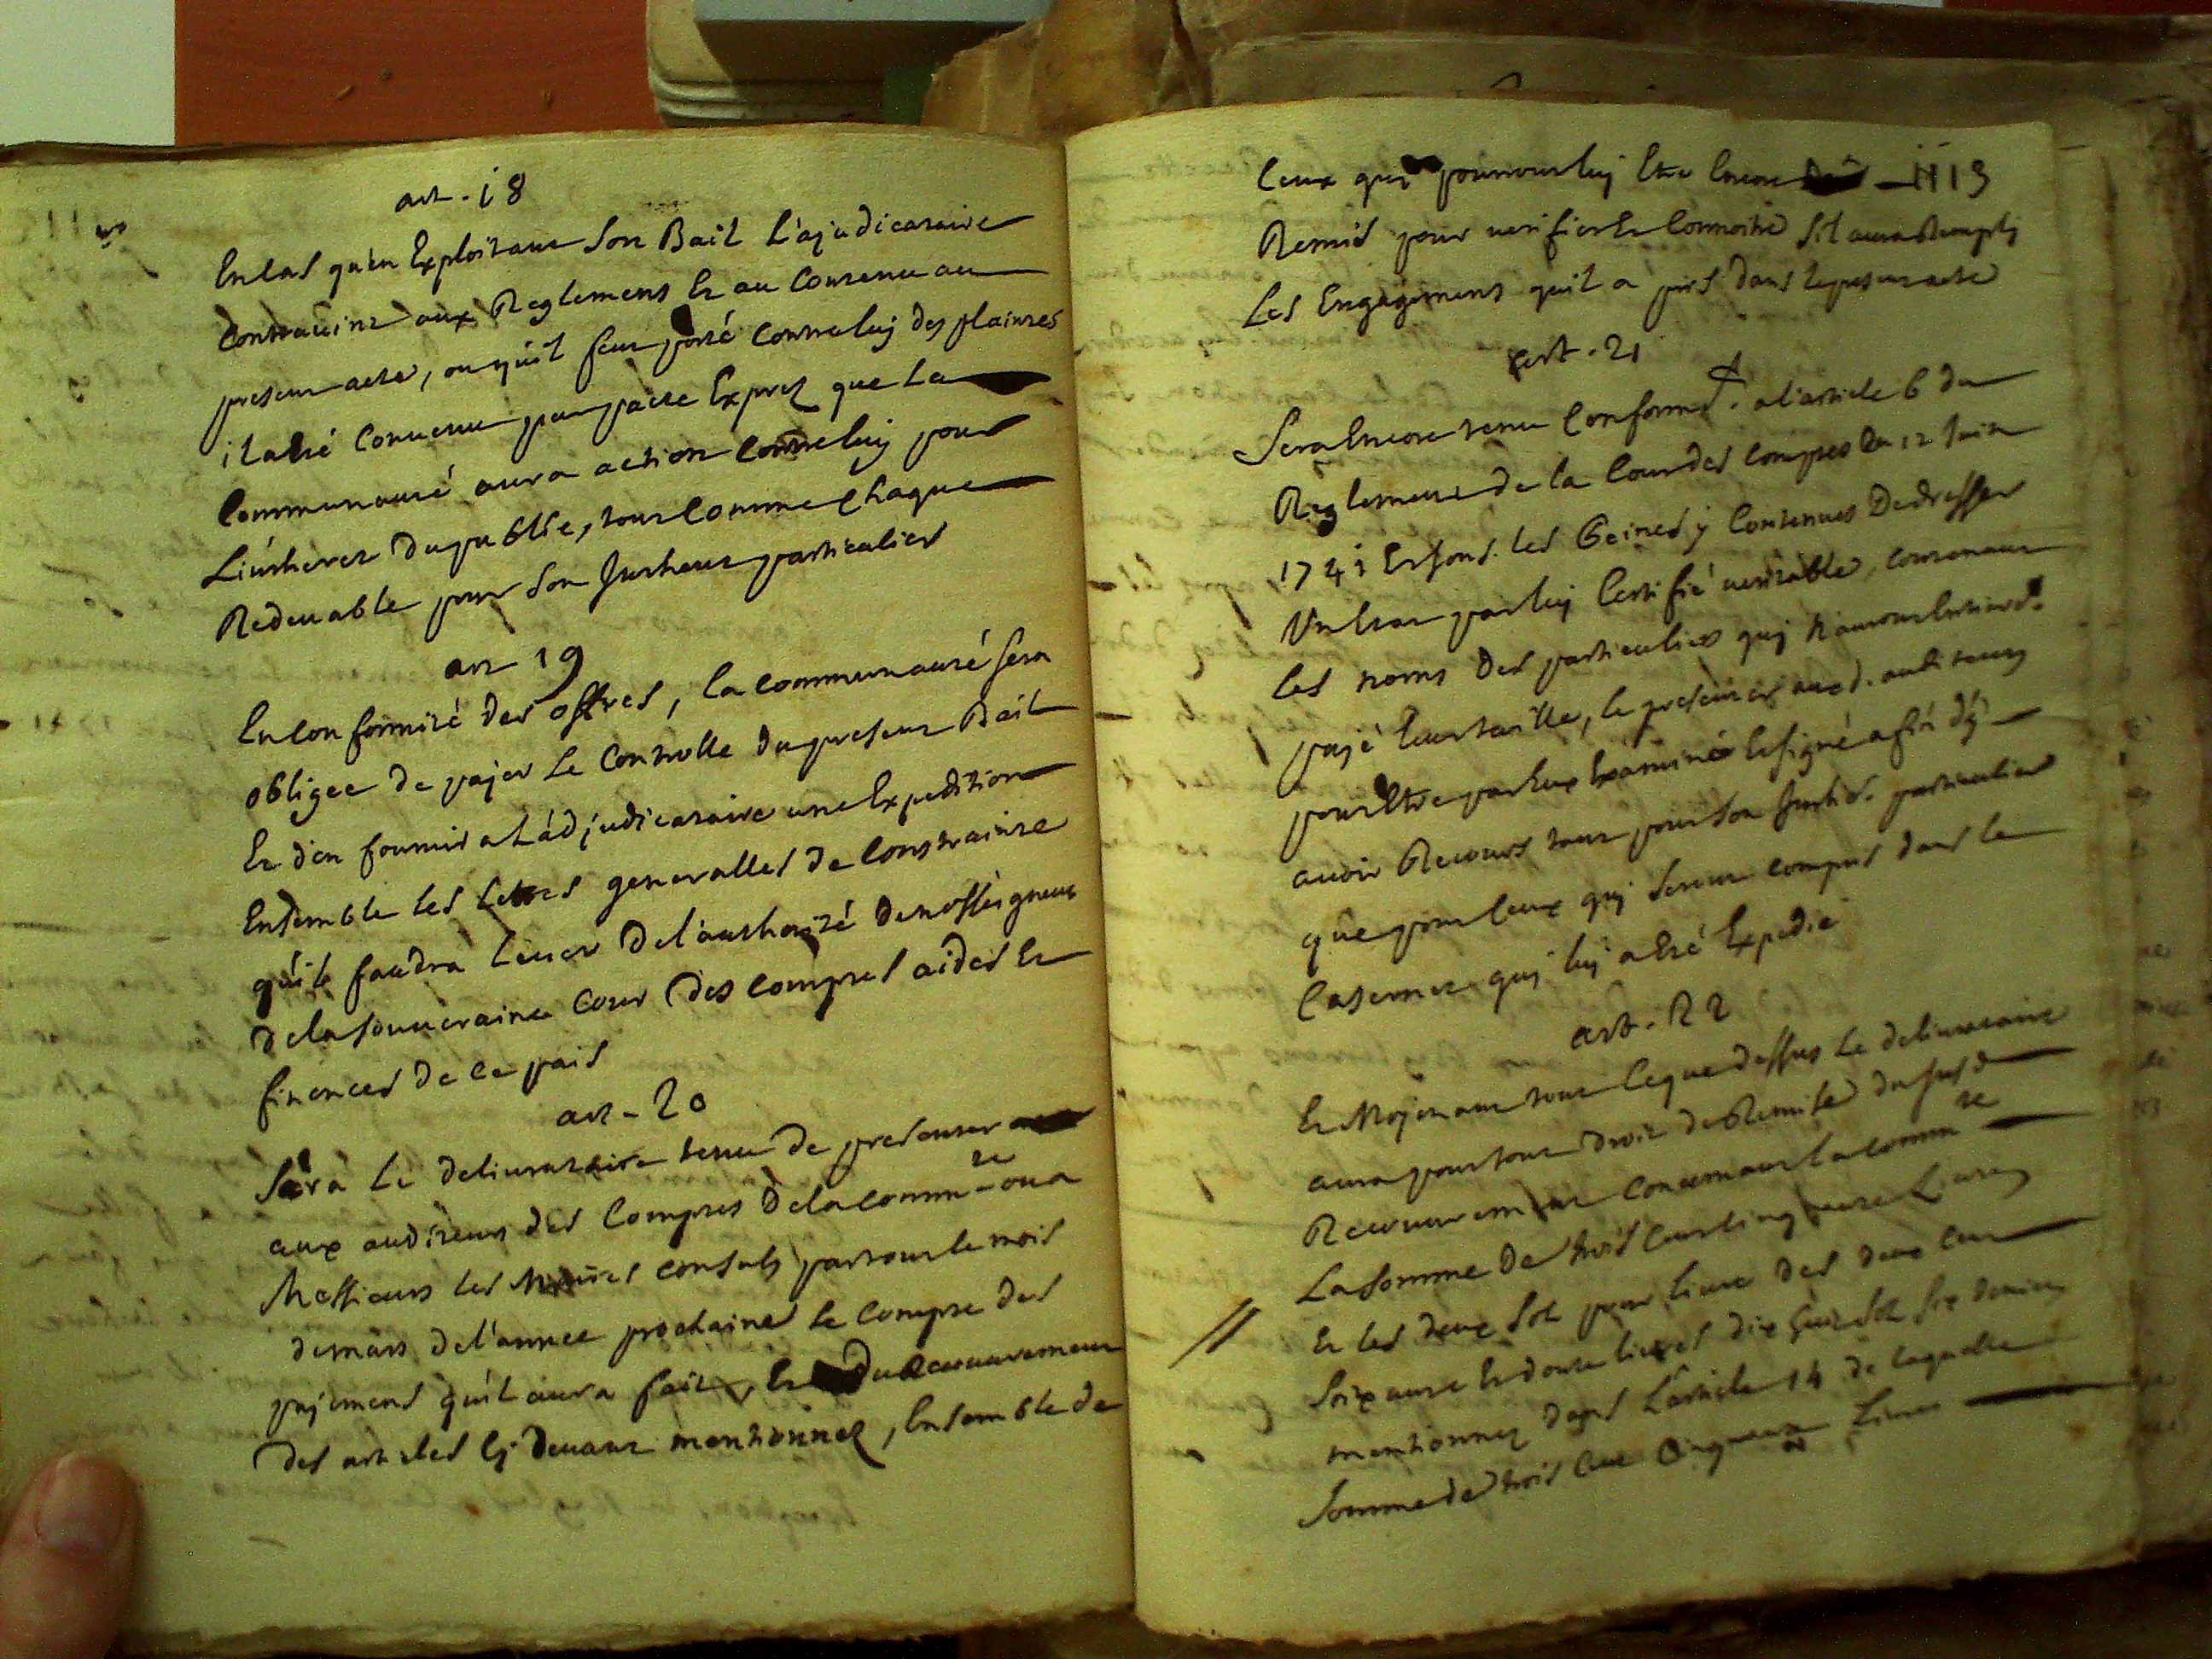 art. 18
En cas qu'en Exploitant son Bail L'ajudicataire
contravint aux Reglemens Et au Contenu au
present acte, ou qu'il feut porté contre luy des plaintes
il a été convenu par pacte Exprez que La
Communauté aura action contre luy pour
L'interet du public, tout comme chaque
Redevable pour son Interest particulier
art 19
En conformité des offres, la communauté sera
obligee de payer Le Controlle du present Bail
Et d'en fournir a L'adjudicataire une Expedition
Ensemble les Lettres generalles de Constrainte
qu'il faudra lever de l'authorité de nosseigneurs
de la souveraine Cour des comptes aides Et
finences de ce pais
art - 20
Sera Le delivrataire tenu de presenter
aux auditeurs des Comptes de la comm.te ou a
Messieurs les Maires consuls par tout le mois
de mars de l'année prochaine le compte des
payemens qu'il aura fait, Et du Recouvrement
des articles cy devant mentionnez, Ensemble de
ceux qui pourront luy Etre Encore 1113
Remis pour verifier Et Connoitre s'il aura Remply
Les Engagemens qu'il a pris dans le present acte
art. 21
Sera Encore tenu Conformt. a l'article 6 du
Reglement de la Cour des comptes du 12 Juin
1741 Et sous les Peines y Contenues De dresser
Un Etat par luy Certifié veritable, contenant
les noms des particuliers quy n'auront Entiert.
payé leur taille, le presenter aux d. auditeurs
pour Etre par Eux Examiné Et signé afin d'y
avoir Recours tant pour son Interest. particulier
que pour ceux quy seront compris dans le
Casernet quy luy a été Expedié
art. 22
Et Moyenant tout ce que dessus Le delivrataire
aura pour tout droit de Remise du susd
Recouvrement Concernant la comm.te
La somme de trois Cent cinquante Livres
Et les deux sol pour livre des deux cent
soixante Et douze livres dix huit sol six deniers
mentionnez dans L'article 14 de laquelle
somme de trois cent Cinquante Livres